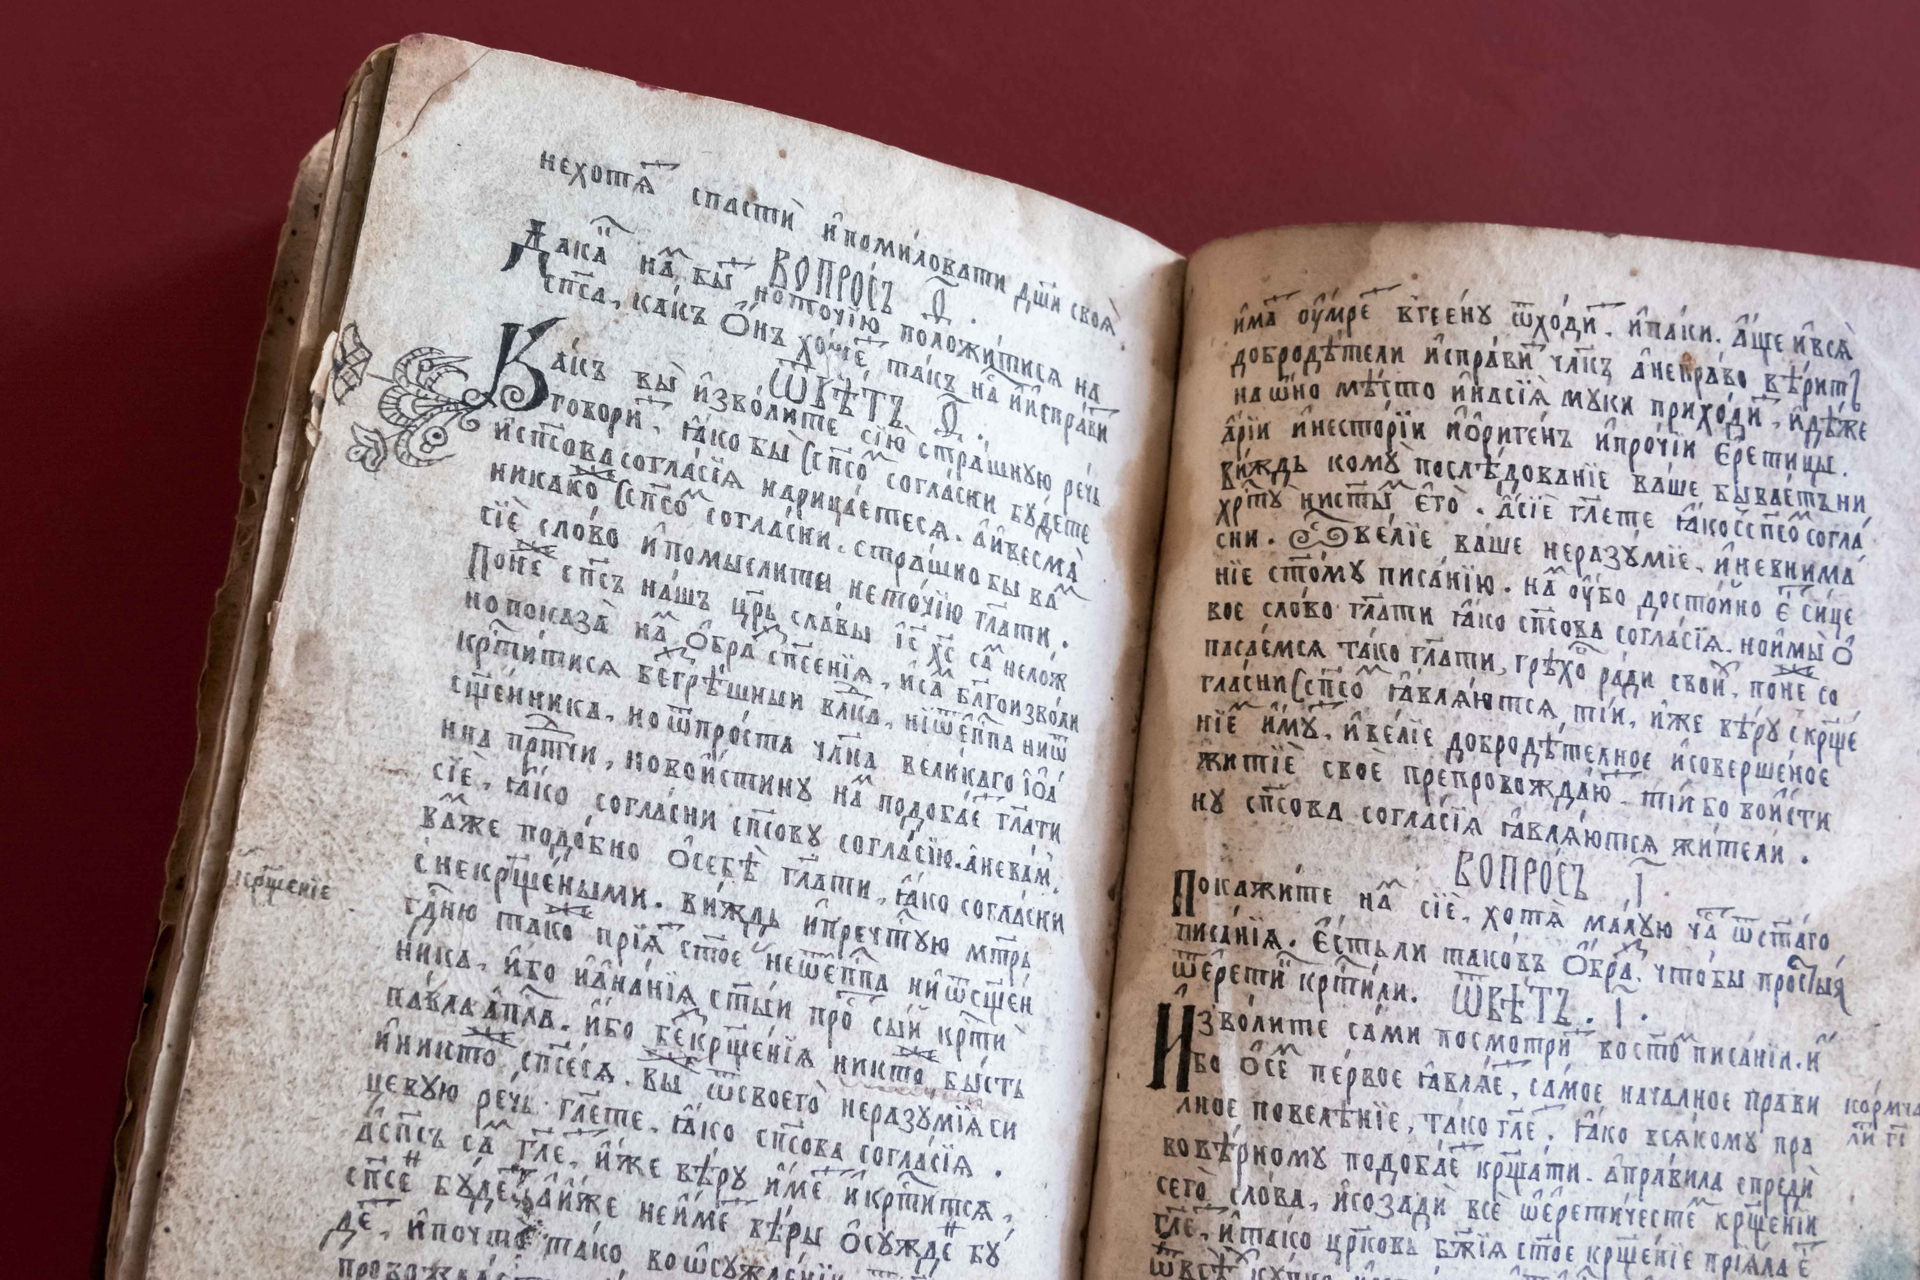 нехотѧ̑ спасти̑ и҆поми́ловати дш҃и своѧ̀
ВОПРО́СЪ Ѳ҃.
Дака́и на̑ бы нето́чїю положи́тисѧ на
сп҃са, ка́къ О҆нъ хо́ще та́къ на̑ и҆испра́ви
Ѿвѣ́тъ Ѳ҃.
Ка́къ вы̀ и҆зво́лите сїю̀ стра́шную рѣчь
говори́ть, ꙗ҆́ко бы̀ сп҃со согла́сни бу́дете
и҆сп҃сова согла́сїѧ нарица́етесѧ. а҆и҆весма̀
никако́ сп҃со̑ согла́сни. стра́шно бы ва̑
сїѐ сло́во и҆помы́слити нето́чїю гл҃ати.
Поне́ сп҃съ на́шъ цр҃ь сла́вы і҆с҃ хс҃ са̑ нело́ж
но показа̀ на̑ О҆́бра сп҃се́нїѧ, и҆са̑ бл҃гоизво́ли
кр҃ти́тисѧ безгрѣ́шныи вл҃ка, ни҆ѿе҆п҃па ни҆ѿ
сщ҃е́нника, но ѿпро́ста чл҃ка вели́каго і҆ѡ҆́а
нна пр҃тчи, новои́стину на̑ подоба́е гл҃ати
сїѐ, ꙗ҆́ко согла́сни сп҃сову согла́сїю. а҆нева́м,
ва̑же подо́бно О҆себѣ̀ гл҃ати, ꙗ҆́ко согла́сни
снекр҃ще́ными. ви́ждь и҆преч҃тую мт҃рь
гд҃ню та́ко прїѧ̑ ст҃ое неѿе҆п҃па ни҆ѿсщ҃е́н
ника, и҆́бо и҆а҆на́нїѧ ст҃ы́и про̑ сы́й кр҃ти
па́вла а҆пл҃а. и҆́бо бекр҃ще́нїѧ никто̀ бы́сть
и҆никто̀ сп҃се́сѧ. вы̀ ѿсвоего̀ неразу́мїѧ си
цеву́ю рѣчь гл҃ете, ꙗ҆́ко сп҃сова согла́сїѧ.
а҆сп҃съ са̑ гл҃е, и҆́же вѣ́ру и҆́ме и҆кр҃ти́тсѧ,
сп҃се бу́де, а҆и҆́же неи҆́ме вѣ́ры О҆сужде́ бу́
де, и҆почто̀ та́ко во ѡ҆сужде́нїи
кр҃ще́нїе
и҆́ма ᲂу҆́мре вгее́ну ѿхо́ди, и҆па́ки. А҆́ще и҆всѧ̀
добродѣ́тели и҆спра́ви чл҃къ а҆непра́во вѣ́ритъ
на ѡ҆́но мѣ́сто и҆насїѧ̀ му́ки прихо́ди, и҆дѣ́же
а҆́рїи и҆несто́рїи и҆О҆риге́нъ и҆про́чїи Е҆ретицы̀.
ви́ждь кому̀ послѣ́дованїе ва́ше быва́етъ ни
хр҃ту̀ ни ст҃ы̑ е҆го̀. а҆сїѐ гл҃ете ꙗ҆́кос сп҃со согла́
сни. Ѽ ве́лїе ва́ше неразу́мїе, и҆невнима́
нїе ст҃ому писа́нїю. на̑ ᲂу҆́бо досто́йно е҆̑ си́це
вое сло́во гл҃ати ꙗ҆́ко сп҃сова согла́сїѧ. но и҆мы̀ О҆
паса́емсѧ та́ко гл҃ати, грѣхо̑ ра́ди свои̑, поне́ со
гла́сни сп҃со̑ ꙗ҆влѧ́ютсѧ, ті́и, и҆́же вѣ́ру скр҃ще́
нїе и҆́му, и҆ве́лїе добродѣ́телное и҆соверше́ное
житїѐ своѐ препровожда́ю. ті́и бо вои́сти
ну сп҃сова согла́сїѧ ꙗ҆влѧ́ютсѧ жи́тели.
ВОПРО́СЪ І҃.
Покажи́те на̑ сїѐ, хотѧ̀ ма́лую ча̑ ѿст҃а́го
писа́нїѧ. Е҆́стьли тако́въ О҆́бра, что́бы про́стыѧ
ѿе́рети кр҃ти́ли. Ѿвѣ́тъ. І҃.
И҆зво́лите са́ми посмотри́ вост҃о писа́нїи. и҆́
бо О҆се́ пе́рвое ꙗ҆влѧ́е, са́мое нача́лное прави
лное повелѣ́нїе, та́ко гл҃е, ꙗ҆́ко всѧ́кому пра
вовѣ́рному подоба́е кр҃ща́ти. а҆пра́вила спредѝ
сего̀ сло́ва, и҆созадѝ всѐ ѿе҆рети́честе кр҃ще́нїи
гл҃е, и҆та́ко цр҃ковь бж҃їѧ ст҃ое кр҃ще́нїе прїѧ́ла е҆̑
ко́рмча